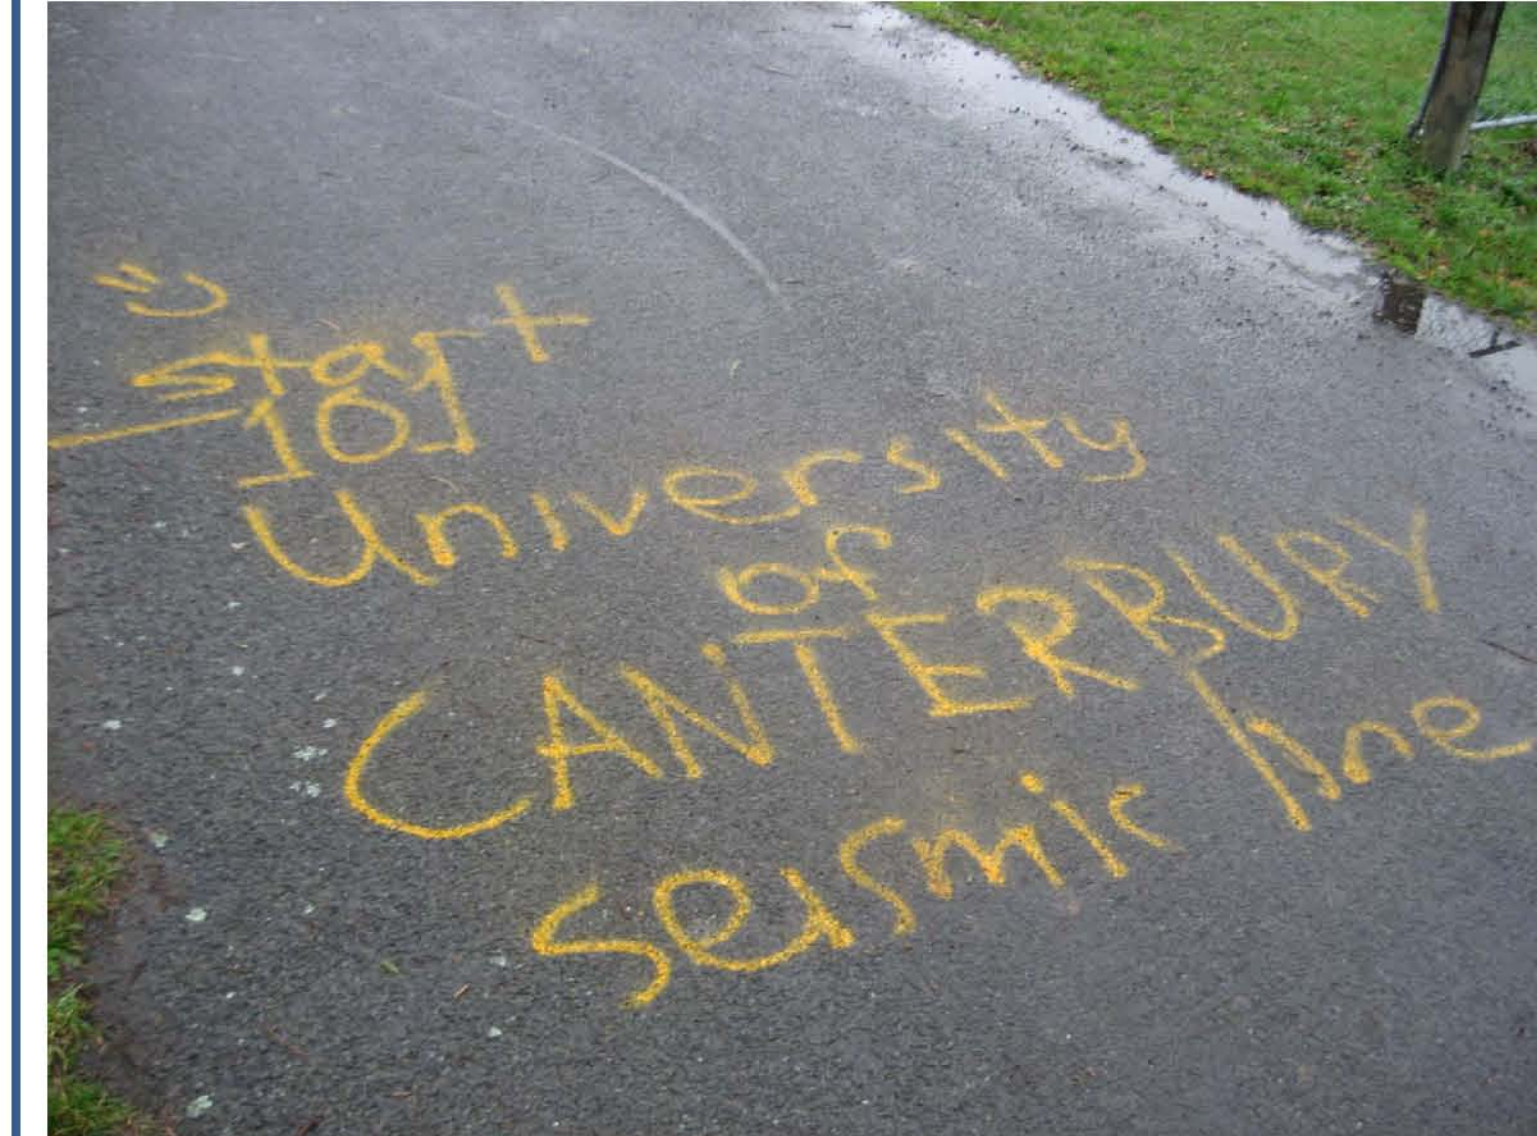 =)
start
101
University
of
CANTERBURY
seismic line